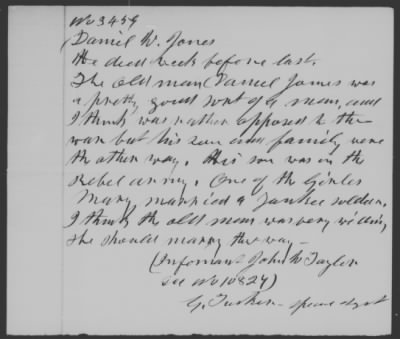 No 3459
Daniel W. Jones
He died week before last.
The old man Daniel Jones was
a pretty good sort of a man, and
I think was rather opposed to the
war but his son and family were
the other way. His son was in the
Rebel army. One of the Girles
Mary married a Yankee soldier.
I think the old man was very willing
She should marry that way—
(Informant John W Taylor
See No 10827)
G. Tucker - Special Agt